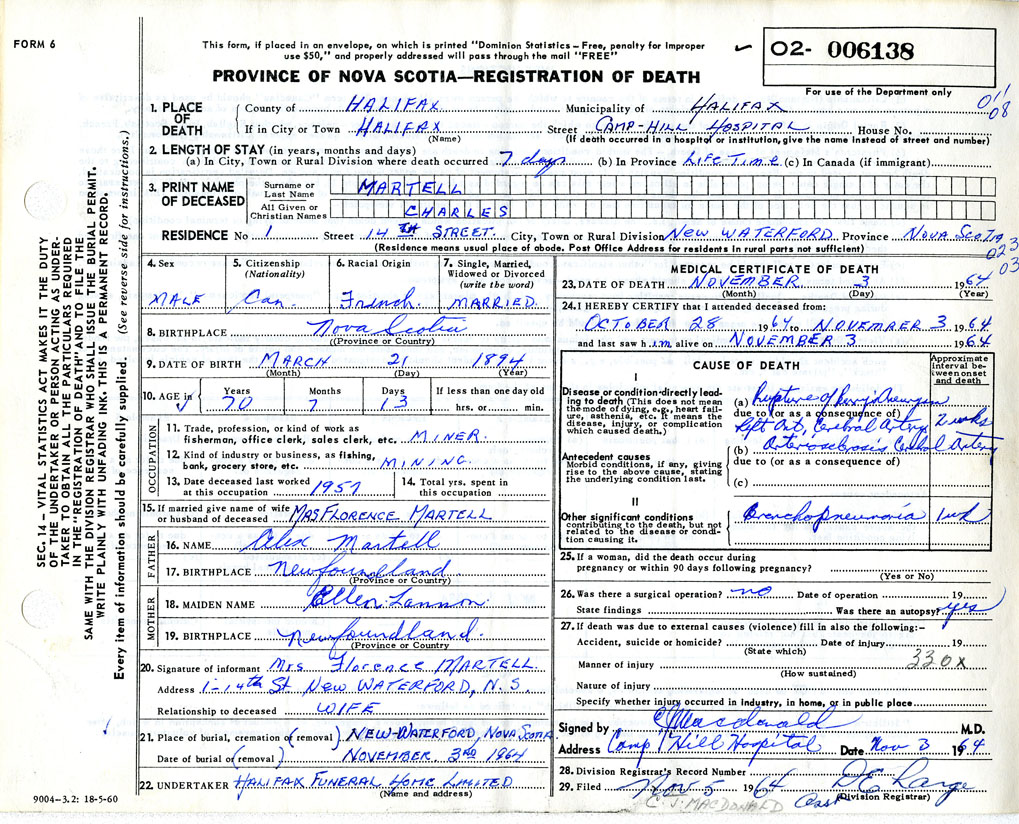 FORM 6
This form, if placed in an envelope, on which is printed "Dominion Statistics – Free, penalty for improper
use $50," and properly addressed will pass through the mail "FREE"
PROVINCE OF NOVA SCOTIA—REGISTRATION OF DEATH
02- 006138
For use of the Department only
011
08
SEC. 14 – VITAL STATISTICS ACT MAKES IT THE DUTY
OF THE UNDERTAKER OR PERSON ACTING AS UNDER-
TAKER TO OBTAIN ALL THE PARTICULARS REQUIRED
IN THE "REGISTRATION OF DEATH" AND TO FILE THE
SAME WITH THE DIVISION REGISTRAR WHO SHALL ISSUE THE BURIAL PERMIT.
WRITE PLAINLY WITH UNFADING INK. THIS IS A PERMANENT RECORD.
Every item of information should be carefully supplied. (See reverse side for instructions.)
1. PLACE OF DEATH
County of HALIFAX Municipality of HALIFAX
If in City or Town HALIFAX Street CAMP-HILL HOSPITAL House No.
(Name) (If death occurred in a hospital or institution, give the name instead of street and number)
2. LENGTH OF STAY (in years, months and days)
(a) In City, Town or Rural Division where death occurred 7 days (b) In Province Life Time (c) In Canada (if immigrant)
3. PRINT NAME OF DECEASED
Surname or Last Name MARTELL
All Given or Christian Names CHARLES
RESIDENCE No 1 Street 14TH STREET. City, Town or Rural Division NEW WATERFORD Province NOVA SCOTIA
(Residence means usual place of abode. Post Office Address for residents in rural parts not sufficient)
023
03
4. Sex MALE
5. Citizenship (Nationality) Can.
6. Racial Origin French.
7. Single, Married, Widowed or Divorced (write the word) MARRIED.
8. BIRTHPLACE Nova Scotia
(Province or Country)
9. DATE OF BIRTH MARCH 21 1894
(Month) (Day) (Year)
10. AGE in Years 70 Months 7 Days 13 If less than one day old hrs. or min.
OCCUPATION
11. Trade, profession, or kind of work as
fisherman, office clerk, sales clerk, etc. MINER.
12. Kind of industry or business, as fishing,
bank, grocery store, etc. MINING.
13. Date deceased last worked
at this occupation 1957
14. Total yrs. spent in
this occupation
15. If married give name of wife
or husband of deceased MRS FLORENCE MARTELL
FATHER
16. NAME Alex Martell
17. BIRTHPLACE Newfoundland
(Province or Country)
MOTHER
18. MAIDEN NAME Ellen Lannon.
19. BIRTHPLACE Newfoundland.
(Province or Country
20. Signature of informant Mrs Florence MARTELL.
Address 1-14th St NEW WATERFORD, N.S.
Relationship to deceased WIFE
21. Place of burial, cremation or removal) NEW-WATERFORD, NOVA SCOTIA
Date of burial (removal) NOVEMBER. 3RD 1964
22. UNDERTAKER HALIFAX FUNERAL HOME LIMITED
(Name and address)
9004-3.2: 18-5-60
MEDICAL CERTIFICATE OF DEATH
23. DATE OF DEATH NOVEMBER 3 1964
(Month) (Day) (Year)
24. I HEREBY CERTIFY that I attended deceased from:
OCTOBER 28 1964 to NOVEMBER 3 1964
and last saw him alive on NOVEMBER 3 1964
CAUSE OF DEATH
Approximate interval between onset and death
I
Disease or condition directly leading to death (This does not mean the mode of dying, e.g., heart failure, asthenia, etc. It means the disease, injury, or complication which caused death.)
(a) Rupture of Berry Aneurysm
due to (or as a consequence of)
left Ant. Cerebral Artery 2 weeks
Antecedent causes
Morbid conditions, if any, giving rise to the above cause, stating the underlying condition last.
(b) Arteriosclerosis Cerebral Artery
due to (or as a consequence of)
(c)
II
Other significant conditions contributing to the death, but not related to the disease or condition causing it.
Bronchopneumonia 1 wk
25. If a woman, did the death occur during
pregnancy or within 90 days following pregnancy?
(Yes or No)
26. Was there a surgical operation? no Date of operation 19
State findings Was there an autopsy? yes
27. If death was due to external causes (violence) fill in also the following:-
Accident, suicide or homicide? Date of injury 19
(State which)
Manner of injury 330X
(How sustained)
Nature of injury
Specify whether injury occurred in industry, in home, or in public place
Signed by C J Macdonald M.D.
Address Camp Hill Hospital Date Nov 3 1964
28. Division Registrar's Record Number
29. Filed Nov 5 1964
(Division Registrar)
C. J. MACDONALD